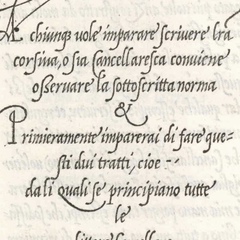 A chiunq vole imparare scrivere lra
corsiva, o sia cancellaresca conviene
osservare la sottoscritta norma
&
Primieramente imparerai di fare que-
sti dui tratti, cioe - -
da li quali se principiano tutte
le